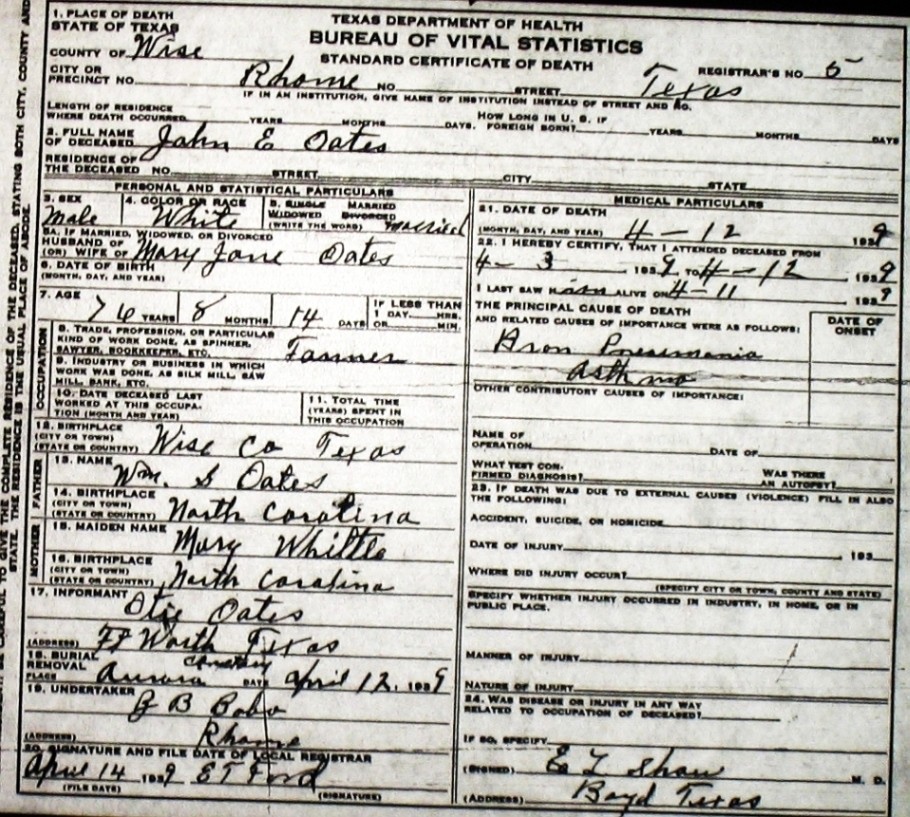 TEXAS DEPARTMENT OF HEALTH
BUREAU OF VITAL STATISTICS
STANDARD CERTIFICATE OF DEATH
1. PLACE OF DEATH
STATE OF TEXAS
COUNTY OF Wise
REGISTRAR'S NO. 5
CITY OR
PRECINCT NO. Rhome NO. STREET Texas
IF IN AN INSTITUTION, GIVE NAME OF INSTITUTION INSTEAD OF STREET AND NO.
LENGTH OF RESIDENCE
WHERE DEATH OCCURRED YEARS MONTHS DAYS. HOW LONG IN U. S. IF FOREIGN BORN? YEARS MONTHS DAYS
2. FULL NAME
OF DECEASED John E Oates
RESIDENCE OF
THE DECEASED NO. STREET CITY STATE
PERSONAL AND STATISTICAL PARTICULARS
3. SEX Male
4. COLOR OR RACE White
5. SINGLE MARRIED
WIDOWED DIVORCED
(WRITE THE WORD) married
5A. IF MARRIED, WIDOWED, OR DIVORCED
HUSBAND OF
(OR) WIFE OF Mary Jane Oates
6. DATE OF BIRTH
(MONTH, DAY, AND YEAR)
7. AGE 76 YEARS 8 MONTHS 14 DAYS
IF LESS THAN
1 DAY HRS.
OR MIN.
OCCUPATION
8. TRADE, PROFESSION, OR PARTICULAR
KIND OF WORK DONE, AS SPINNER,
SAWYER, BOOKKEEPER, ETC. Farmer
9. INDUSTRY OR BUSINESS IN WHICH
WORK WAS DONE, AS SILK MILL, SAW
MILL, BANK, ETC.
10. DATE DECEASED LAST
WORKED AT THIS OCCUPA-
TION (MONTH AND YEAR)
11. TOTAL TIME
(YEARS) SPENT IN
THIS OCCUPATION
12. BIRTHPLACE
(CITY OR TOWN)
(STATE OR COUNTRY) Wise Co Texas
FATHER
13. NAME Wm. S Oates
14. BIRTHPLACE
(CITY OR TOWN)
(STATE OR COUNTRY) North Carolina
MOTHER
15. MAIDEN NAME Mary Whittle
16. BIRTHPLACE
(CITY OR TOWN)
(STATE OR COUNTRY) North Carolina
17. INFORMANT Otis Oates
(ADDRESS) Ft Worth Texas
18. BURIAL
REMOVAL
PLACE Aurora Cemetery DATE April 12, 1939
19. UNDERTAKER B Bobo
(ADDRESS) Rhome
20. SIGNATURE AND FILE DATE OF LOCAL REGISTRAR
April 14 1939 E T Ford
(FILE DATE) (SIGNATURE)
MEDICAL PARTICULARS
21. DATE OF DEATH
(MONTH, DAY, AND YEAR) 4-12 1939
22. I HEREBY CERTIFY, THAT I ATTENDED DECEASED FROM
4-3, 1939 TO 4-12 1939
I LAST SAW him ALIVE ON 4-11 1939
THE PRINCIPAL CAUSE OF DEATH
AND RELATED CAUSES OF IMPORTANCE WERE AS FOLLOWS:
DATE OF
ONSET
Bron Pneumonia
Asthma
OTHER CONTRIBUTORY CAUSES OF IMPORTANCE:
NAME OF
OPERATION DATE OF
WHAT TEST CON-
FIRMED DIAGNOSIS? WAS THERE
AN AUTOPSY?
23. IF DEATH WAS DUE TO EXTERNAL CAUSES (VIOLENCE) FILL IN ALSO
THE FOLLOWING:
ACCIDENT, SUICIDE, OR HOMICIDE
DATE OF INJURY , 193
WHERE DID INJURY OCCUR?
(SPECIFY CITY OR TOWN, COUNTY AND STATE)
SPECIFY WHETHER INJURY OCCURRED IN INDUSTRY, IN HOME, OR IN
PUBLIC PLACE.
MANNER OF INJURY
NATURE OF INJURY
24. WAS DISEASE OR INJURY IN ANY WAY
RELATED TO OCCUPATION OF DECEASED?
IF SO, SPECIFY
(SIGNED) E L Shaw M. D.
(ADDRESS) Boyd Texas
TO GIVE THE COMPLETE RESIDENCE OF THE DECEASED, STATING BOTH CITY, COUNTY AND
STATE. THE RESIDENCE IS THE USUAL PLACE OF ABODE.